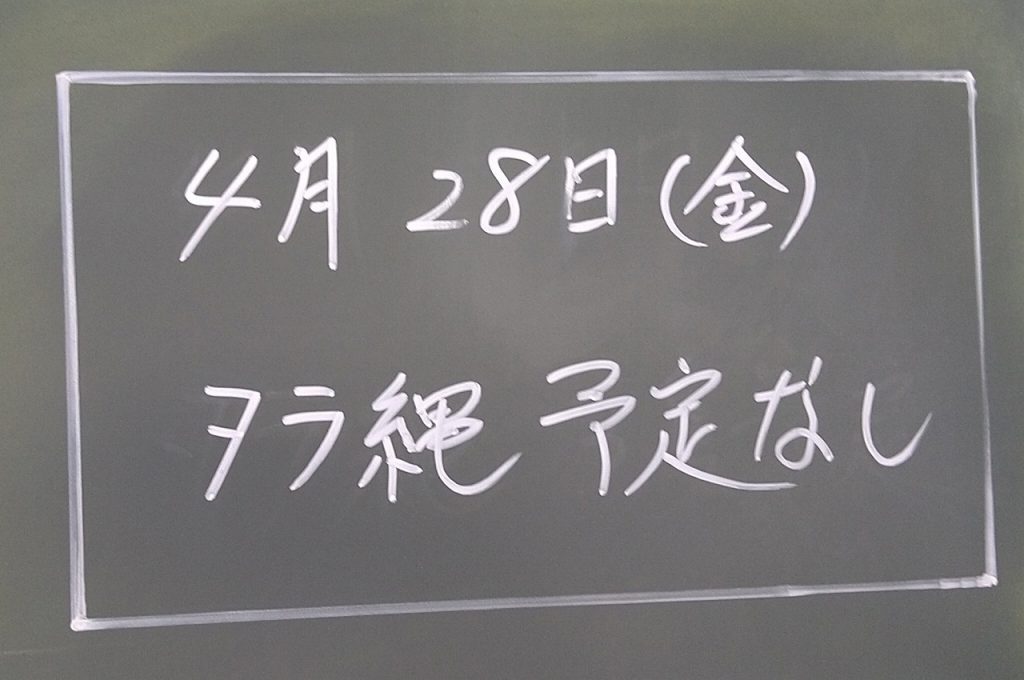 4月 28日(金)
ヲラ縄 予定なし